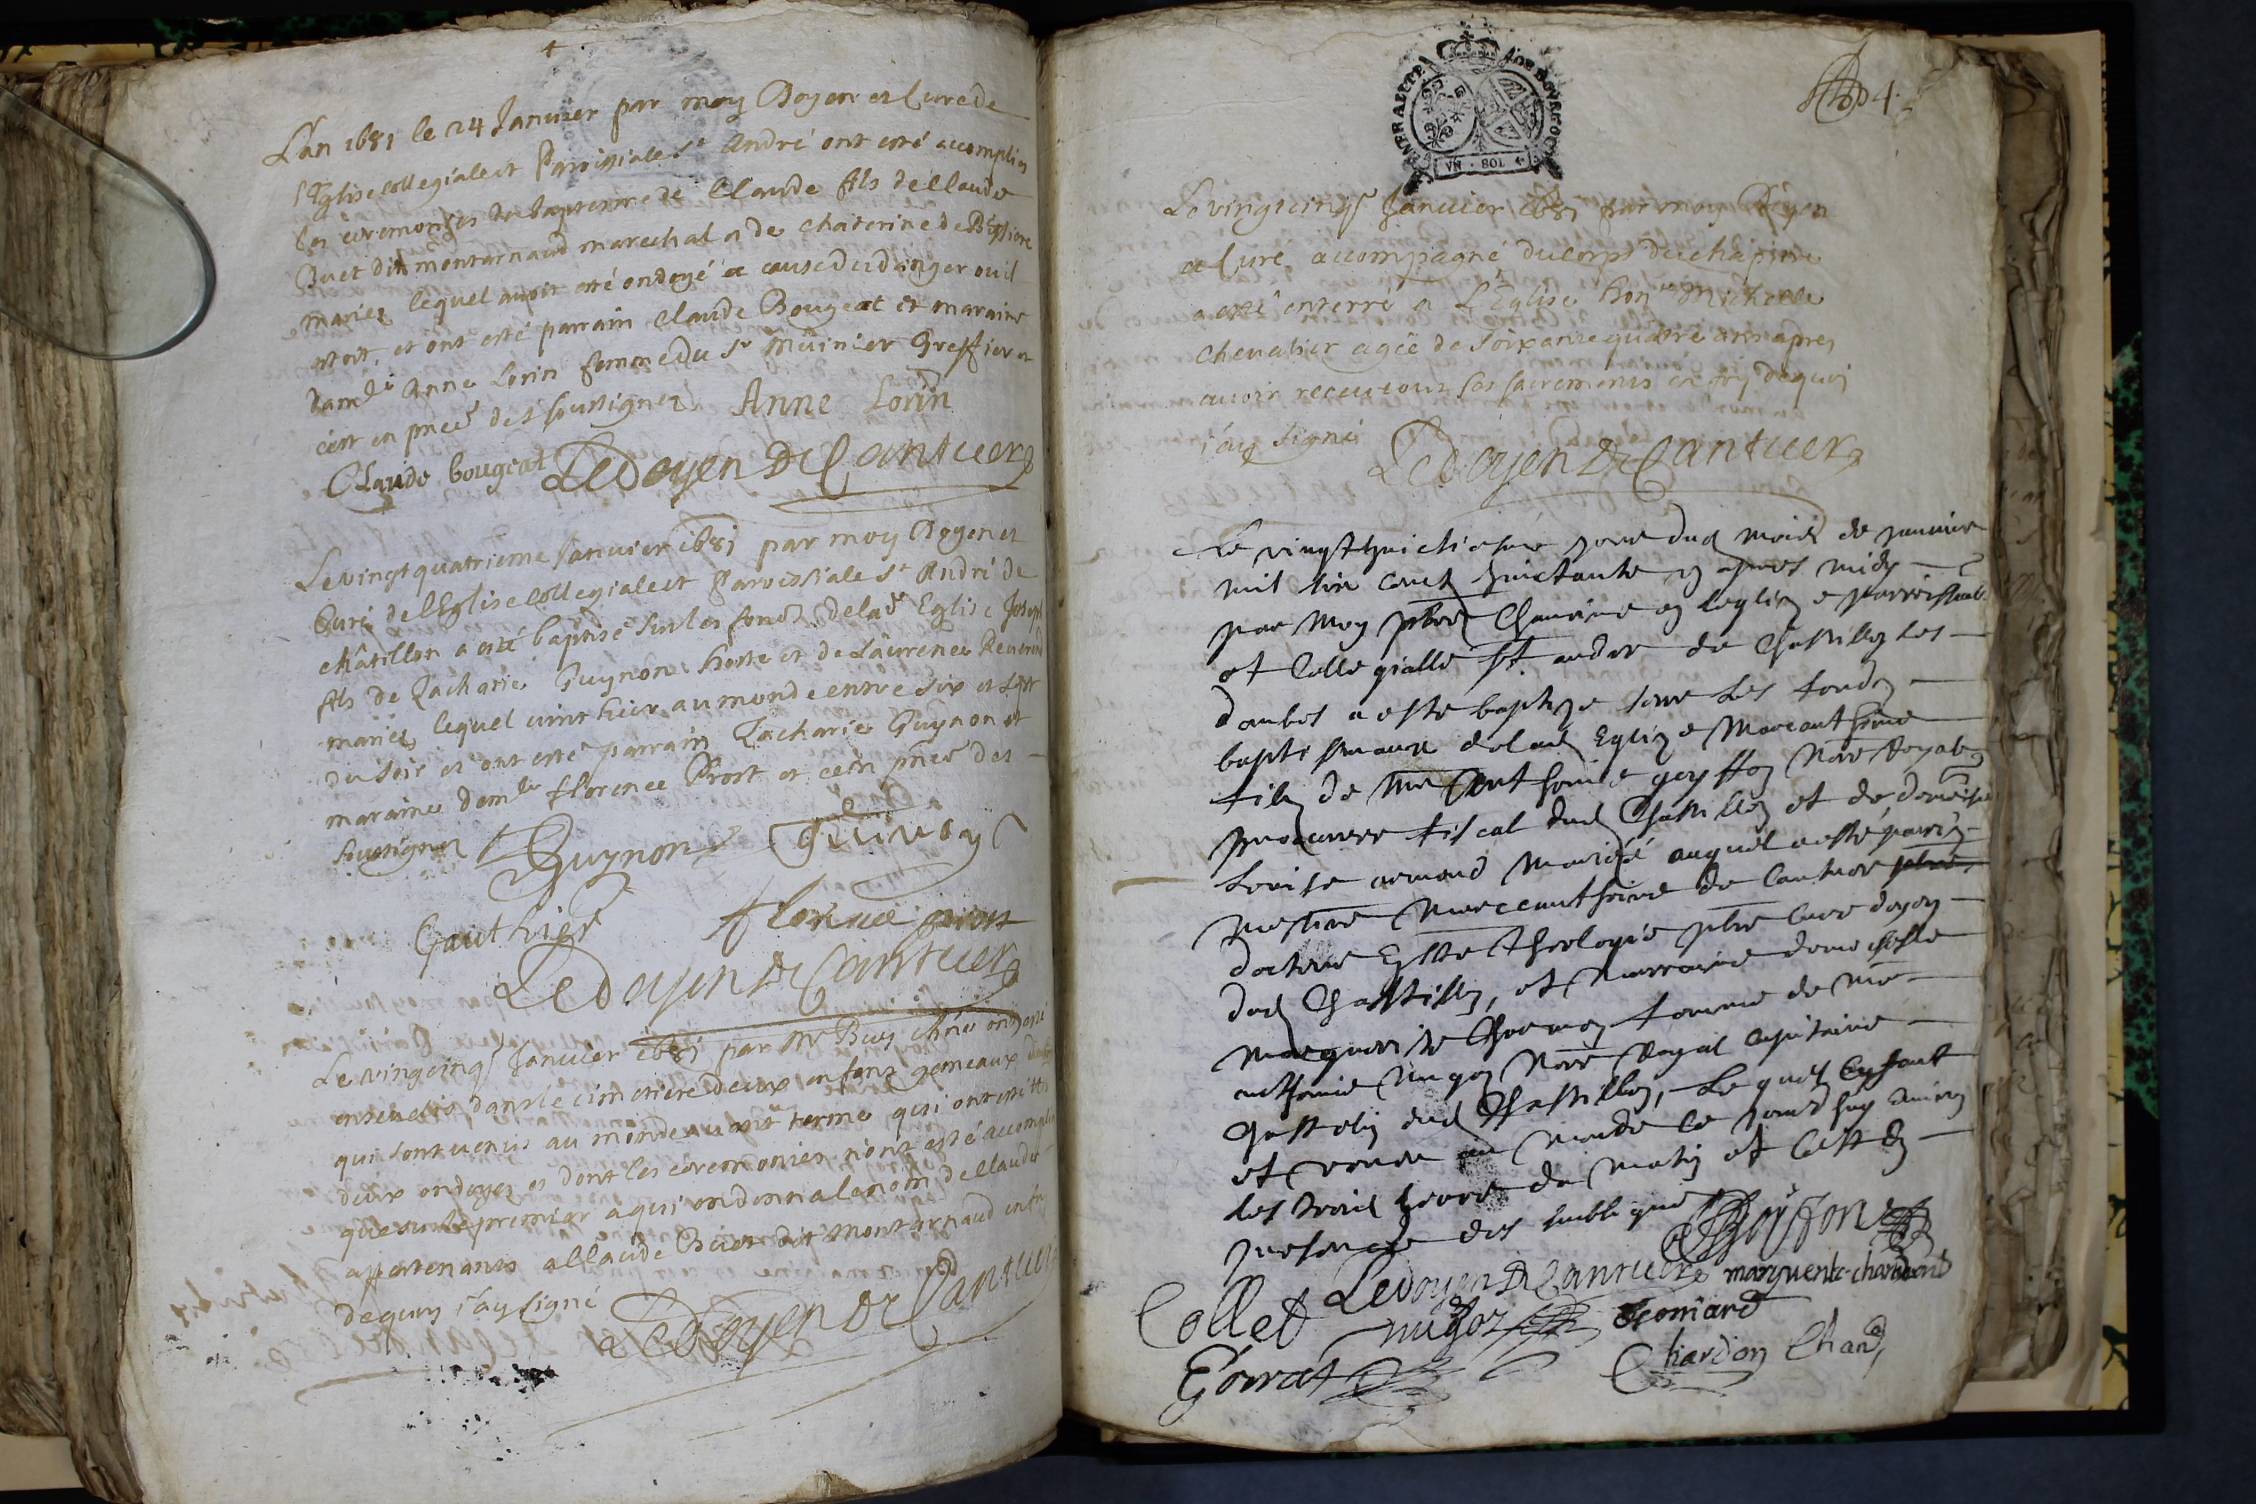 4
L'an 1681 le 24 Janvier par moy Doyen et Curé de
l'Eglise collegiale et Paroissiale St André ont esté accomplies
les ceremonies du baptesme de Claude fils de Claude
Buet dit montarnaud marechal et de Chaterine de
mariez lequel avoit esté ondoyé a cause du danger ou il
estoit, et ont esté parrain Claude Bougeat et maraine
Anne Lorin femme du Sr Muinier Greffier et
c'est en pnce des soussignez Anne Lorin
Claude bougeat Le doyen De Cantuer
Le vingt quatrieme Janvier 1681 par moy Doyen et
Curé de l'Eglise collegiale et Paroissiale St André de
châtillon a esté baptisé sur les fonds de lad Eglise Joseph
fils de Zacharie Guynon hoste et de Laurence
mariez lequel vint hier au monde entre six et sept
du soir et ont esté parrain Zacharie Guynon et
maraine dem.lle florence Prost et c'est en pnce des
soussignez Guynon
Gauthier florence prost
Le doyen De Cantuer
Le vingcinq Janvier 1681 par Mr Buy ont esté
ensevelis dans le cimetiere deux enfans gemeaux
qui sont venus au monde avant terme qui ont esté tous
deux ondoyez et dont les ceremonies n'ont esté accomplies
que sur le premier a qui on donna le nom de Claude
appartenants a Claude Buet dit Montarnaud en foy
dequoy j'ay signé Le Doyen De Cantuer
GENERALITE DE BOURGOGNE
VN · SOL
4.
Le vingcinq Janvier 1681 par moy Doyen
et Curé accompagné du corps du chapitre
a esté enterré a L'Eglise hon. Michelle
Chevalier agée de soixante quatre ans apres
avoir receu tous ses sacrements en foy dequoi
j'ay signé Le doyen De Cantuer
Le vingt huictiesme jour dud mois de janvier
mil six cent huictante un apres midy
par moy pbre Chanoine en leglize parroissialle
et Collegialle St andre de Chastillon les
dombes a esté baptize sur les fondz
baptismaux de lad Eglize Marcanthoine
filz de Me Anthoine goyffon Nore Royal
procureur fiscal dud Chastillon et de damoiselle
Louise mariés auquel a esté parrin
messire Marcanthoine de Cantuer
docteur en Ste theologie pbre cure doyen
dud Chastillon, et marraine damoiselle
Marguerite femme de Me
anthoine nugoz Nore Royal capitaine
chastelin dud Chastillon, Lequel enfant
est venu au monde le jourdhuy environ
les trois heures du matin et c'est en
presence des soubsignes Goyffon
Collet Le doyen De Cantuer marguerite chardond
nugoz Leonard
Gorrat Chardon Chan.